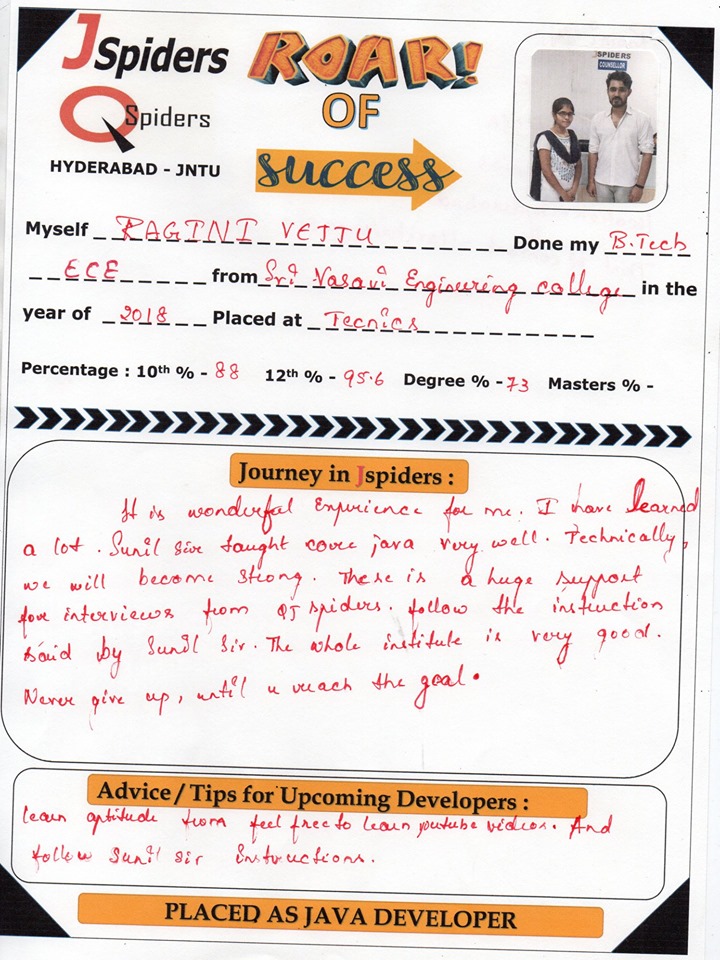 JSpiders
ROAR!
OF
success
QSpiders
HYDERABAD - JNTU
JSPIDERS
COUNSELLOR
Myself RAGINI VEJJU Done my B.Tech
ECE from Sri Vasavi Enginering college in the
year of 2018 Placed at Tecnics
Percentage : 10th % - 88 12th % - 95.6 Degree % - 73 Masters % -
Journey in Jspiders :
It is wonderful Experience for me. I have learned
a lot. Sunil sir taught core java very well. Technically,
we will become strong. There is a huge support
for interviews from QJspiders. follow the instruction
said by Sunil Sir. The whole institute is very good.
Never give up, until u reach the goal.
Advice / Tips for Upcoming Developers :
learn aptitude from feel free to learn youtube videos. And
follow Sunil sir Instructions.
PLACED AS JAVA DEVELOPER